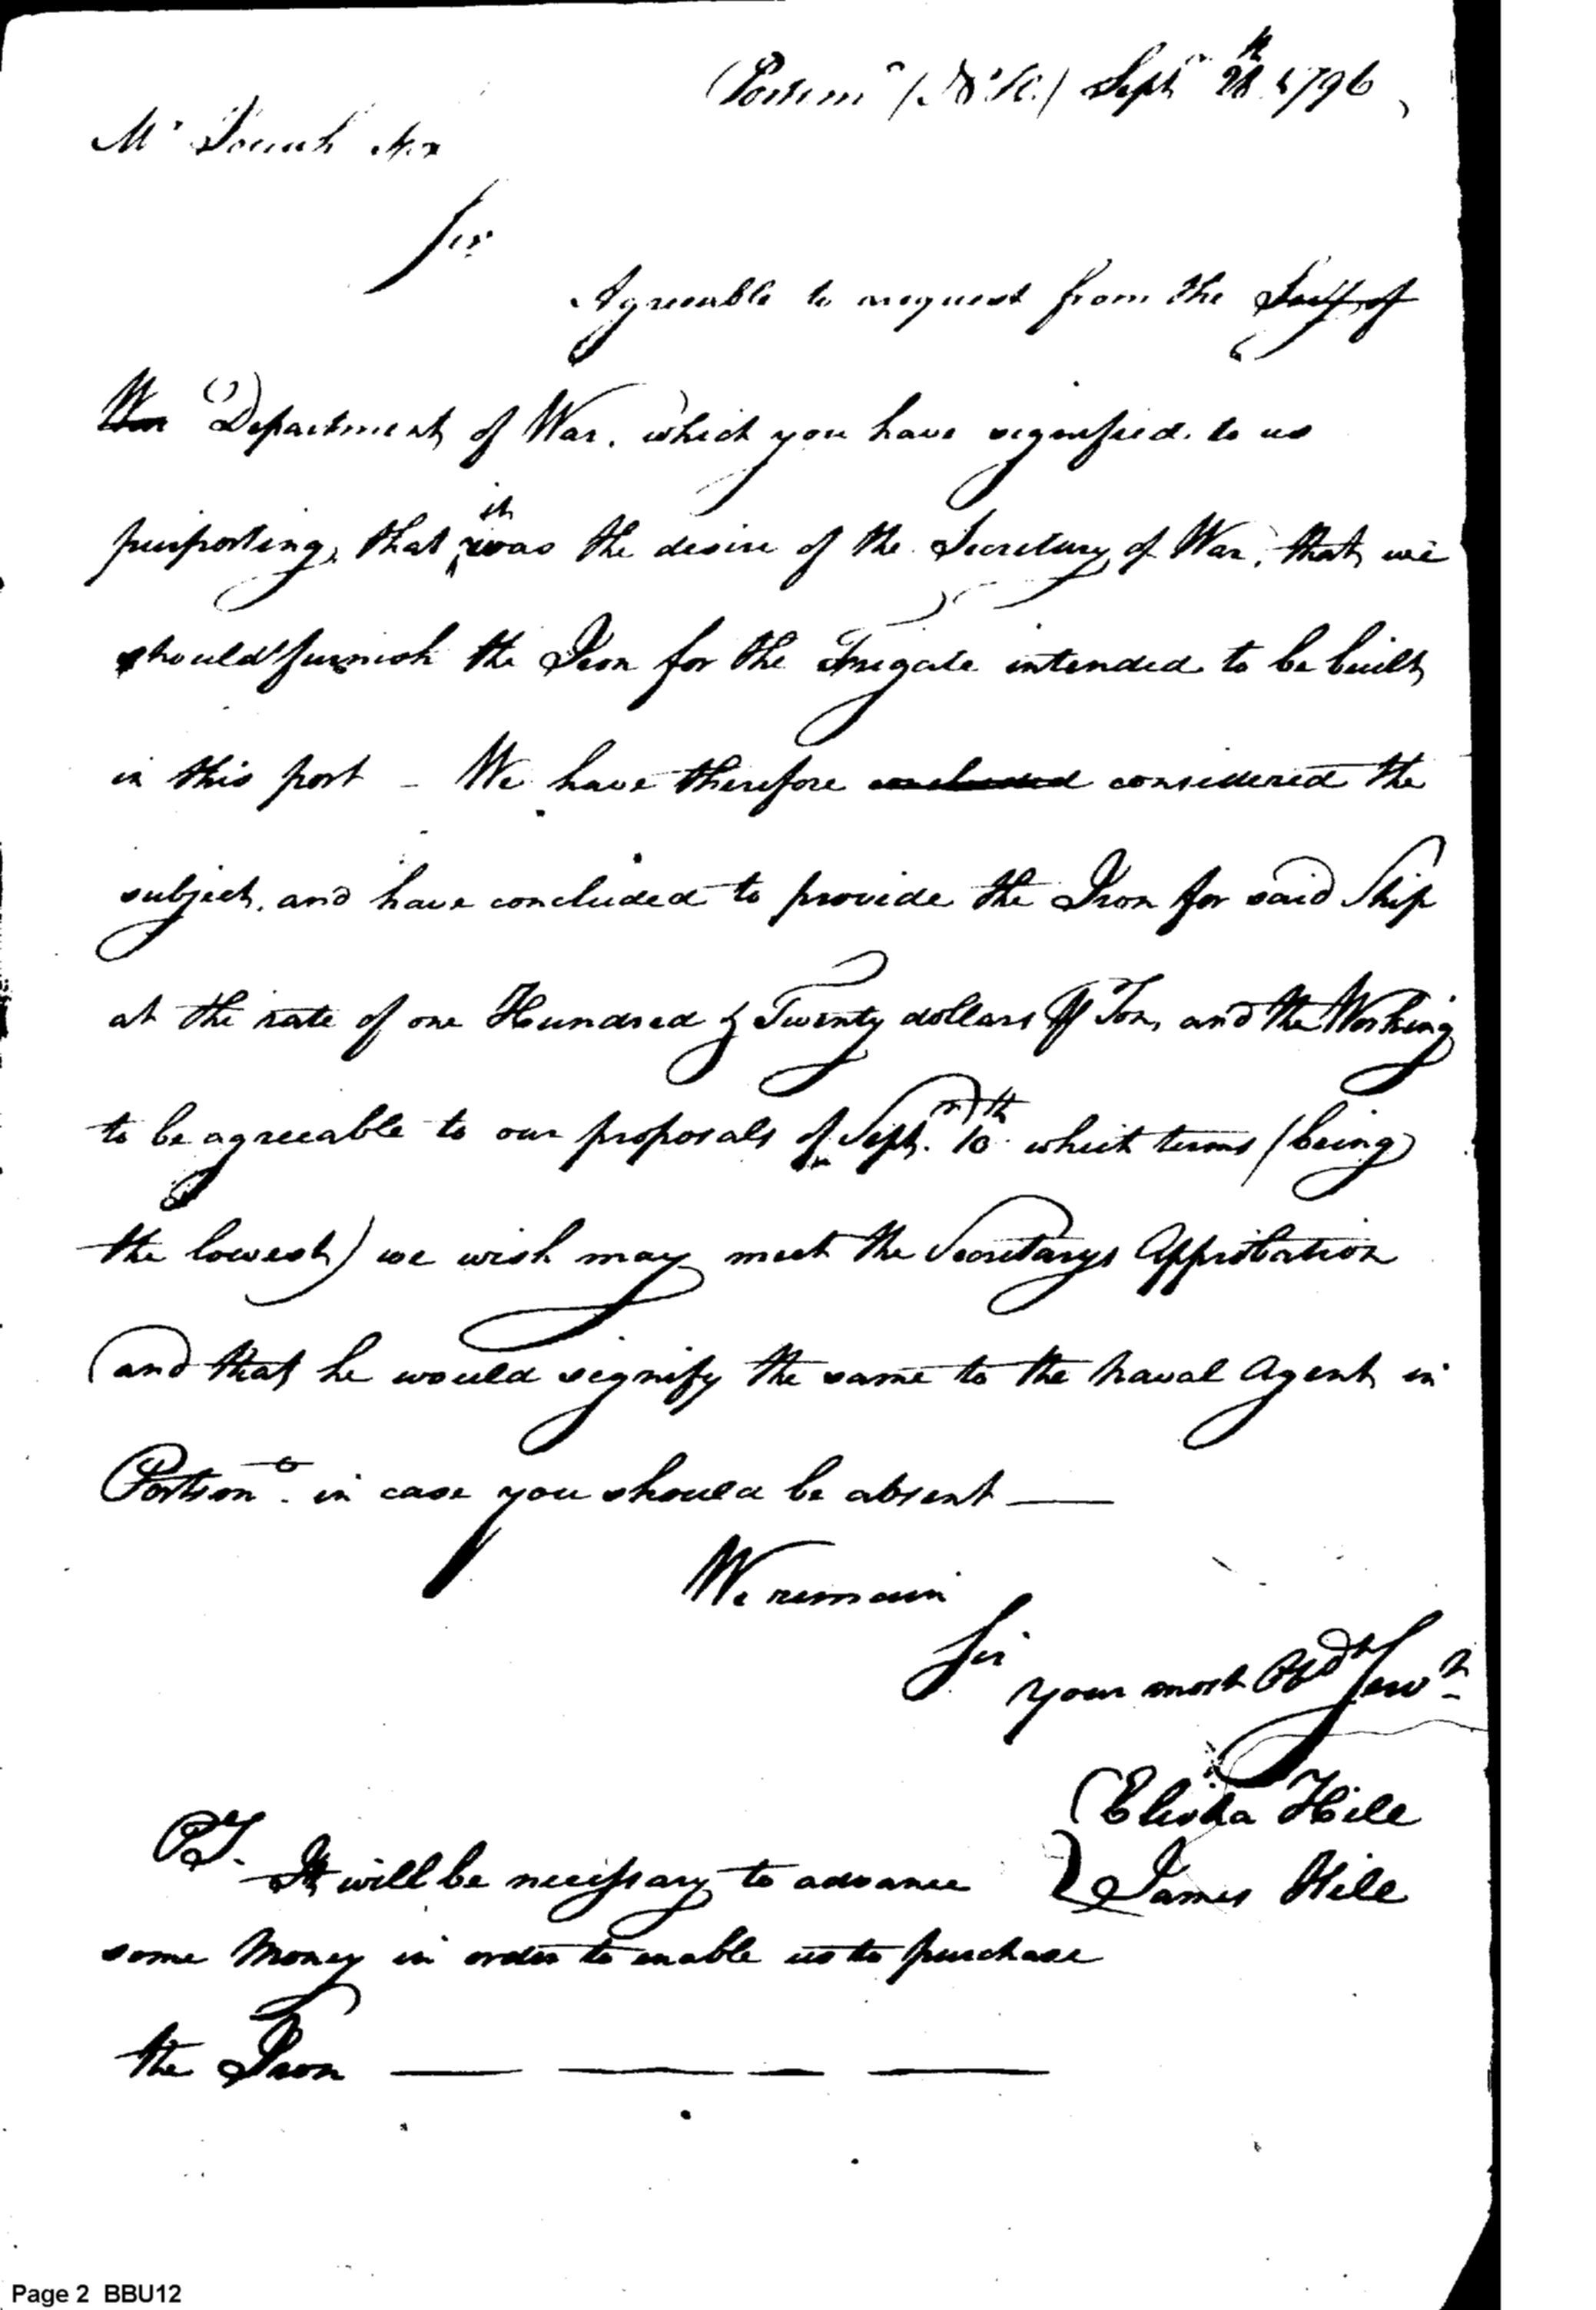 Portsmo (N.H.) Sept 28th 1796
Mr Josiah Fox
Sir
Agreeable to a request from the Secy of
War Department of War, which you have signified to us
purporting, that it was the desire of the Secretary of War, that we
should furnish the Iron for the Frigate intended to be built
in this port - We have therefore concluded considered the
subject, and have concluded to provide the Iron for said Ship
at the rate of one Hundred & Twenty dollars ⅌ Ton, and the Working
to be agreeable to our proposals of Sept. 10th which terms (being
the lowest) we wish may meet the Secretarys Approbation
and that he would signify the same to the naval Agent in
Portsmo in case you should be absent —
We remain
Sir
your most Obdt Servt
Elisha Hill
James Hill
PS. It will be necessary to advance
some Money in order to enable us to purchase
the Iron — — — —
Page 2 BBU12